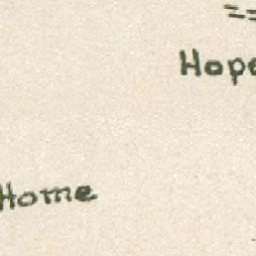 Hope
Home